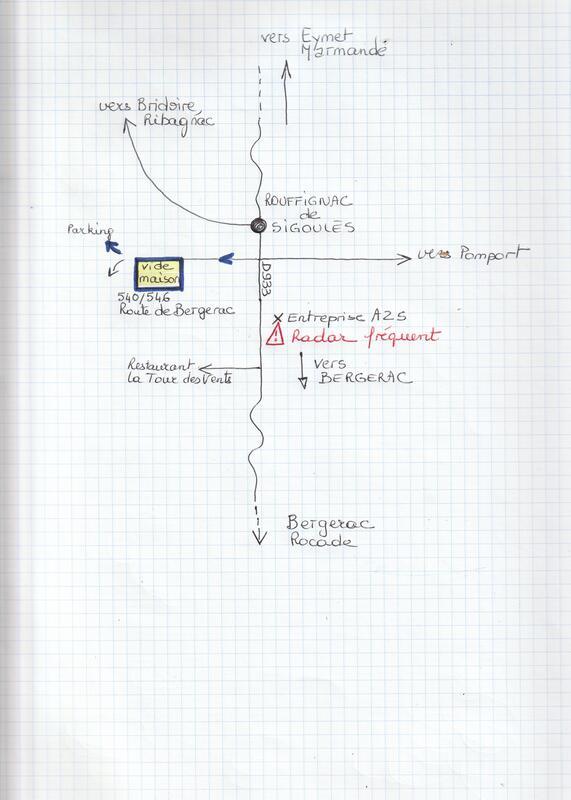 vers Eymet
Marmandé
vers Bridoire
Ribagnac
ROUFFIGNAC
de
SIGOULÈS
Parking
vers Pomport
vide
maison
D933
540/546
Route de Bergerac
Entreprise A2S
Radar fréquent
vers
BERGERAC
Restaurant
la Tour des Vents
Bergerac
Rocade